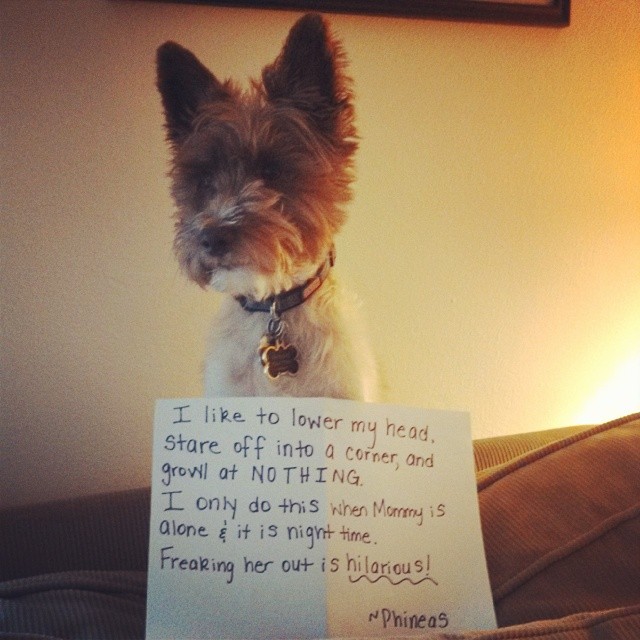 I like to lower my head,
stare off into a corner, and
growl at NOTHING.
I only do this when Mommy is
alone & it is night time.
Freaking her out is hilarious!
~Phineas